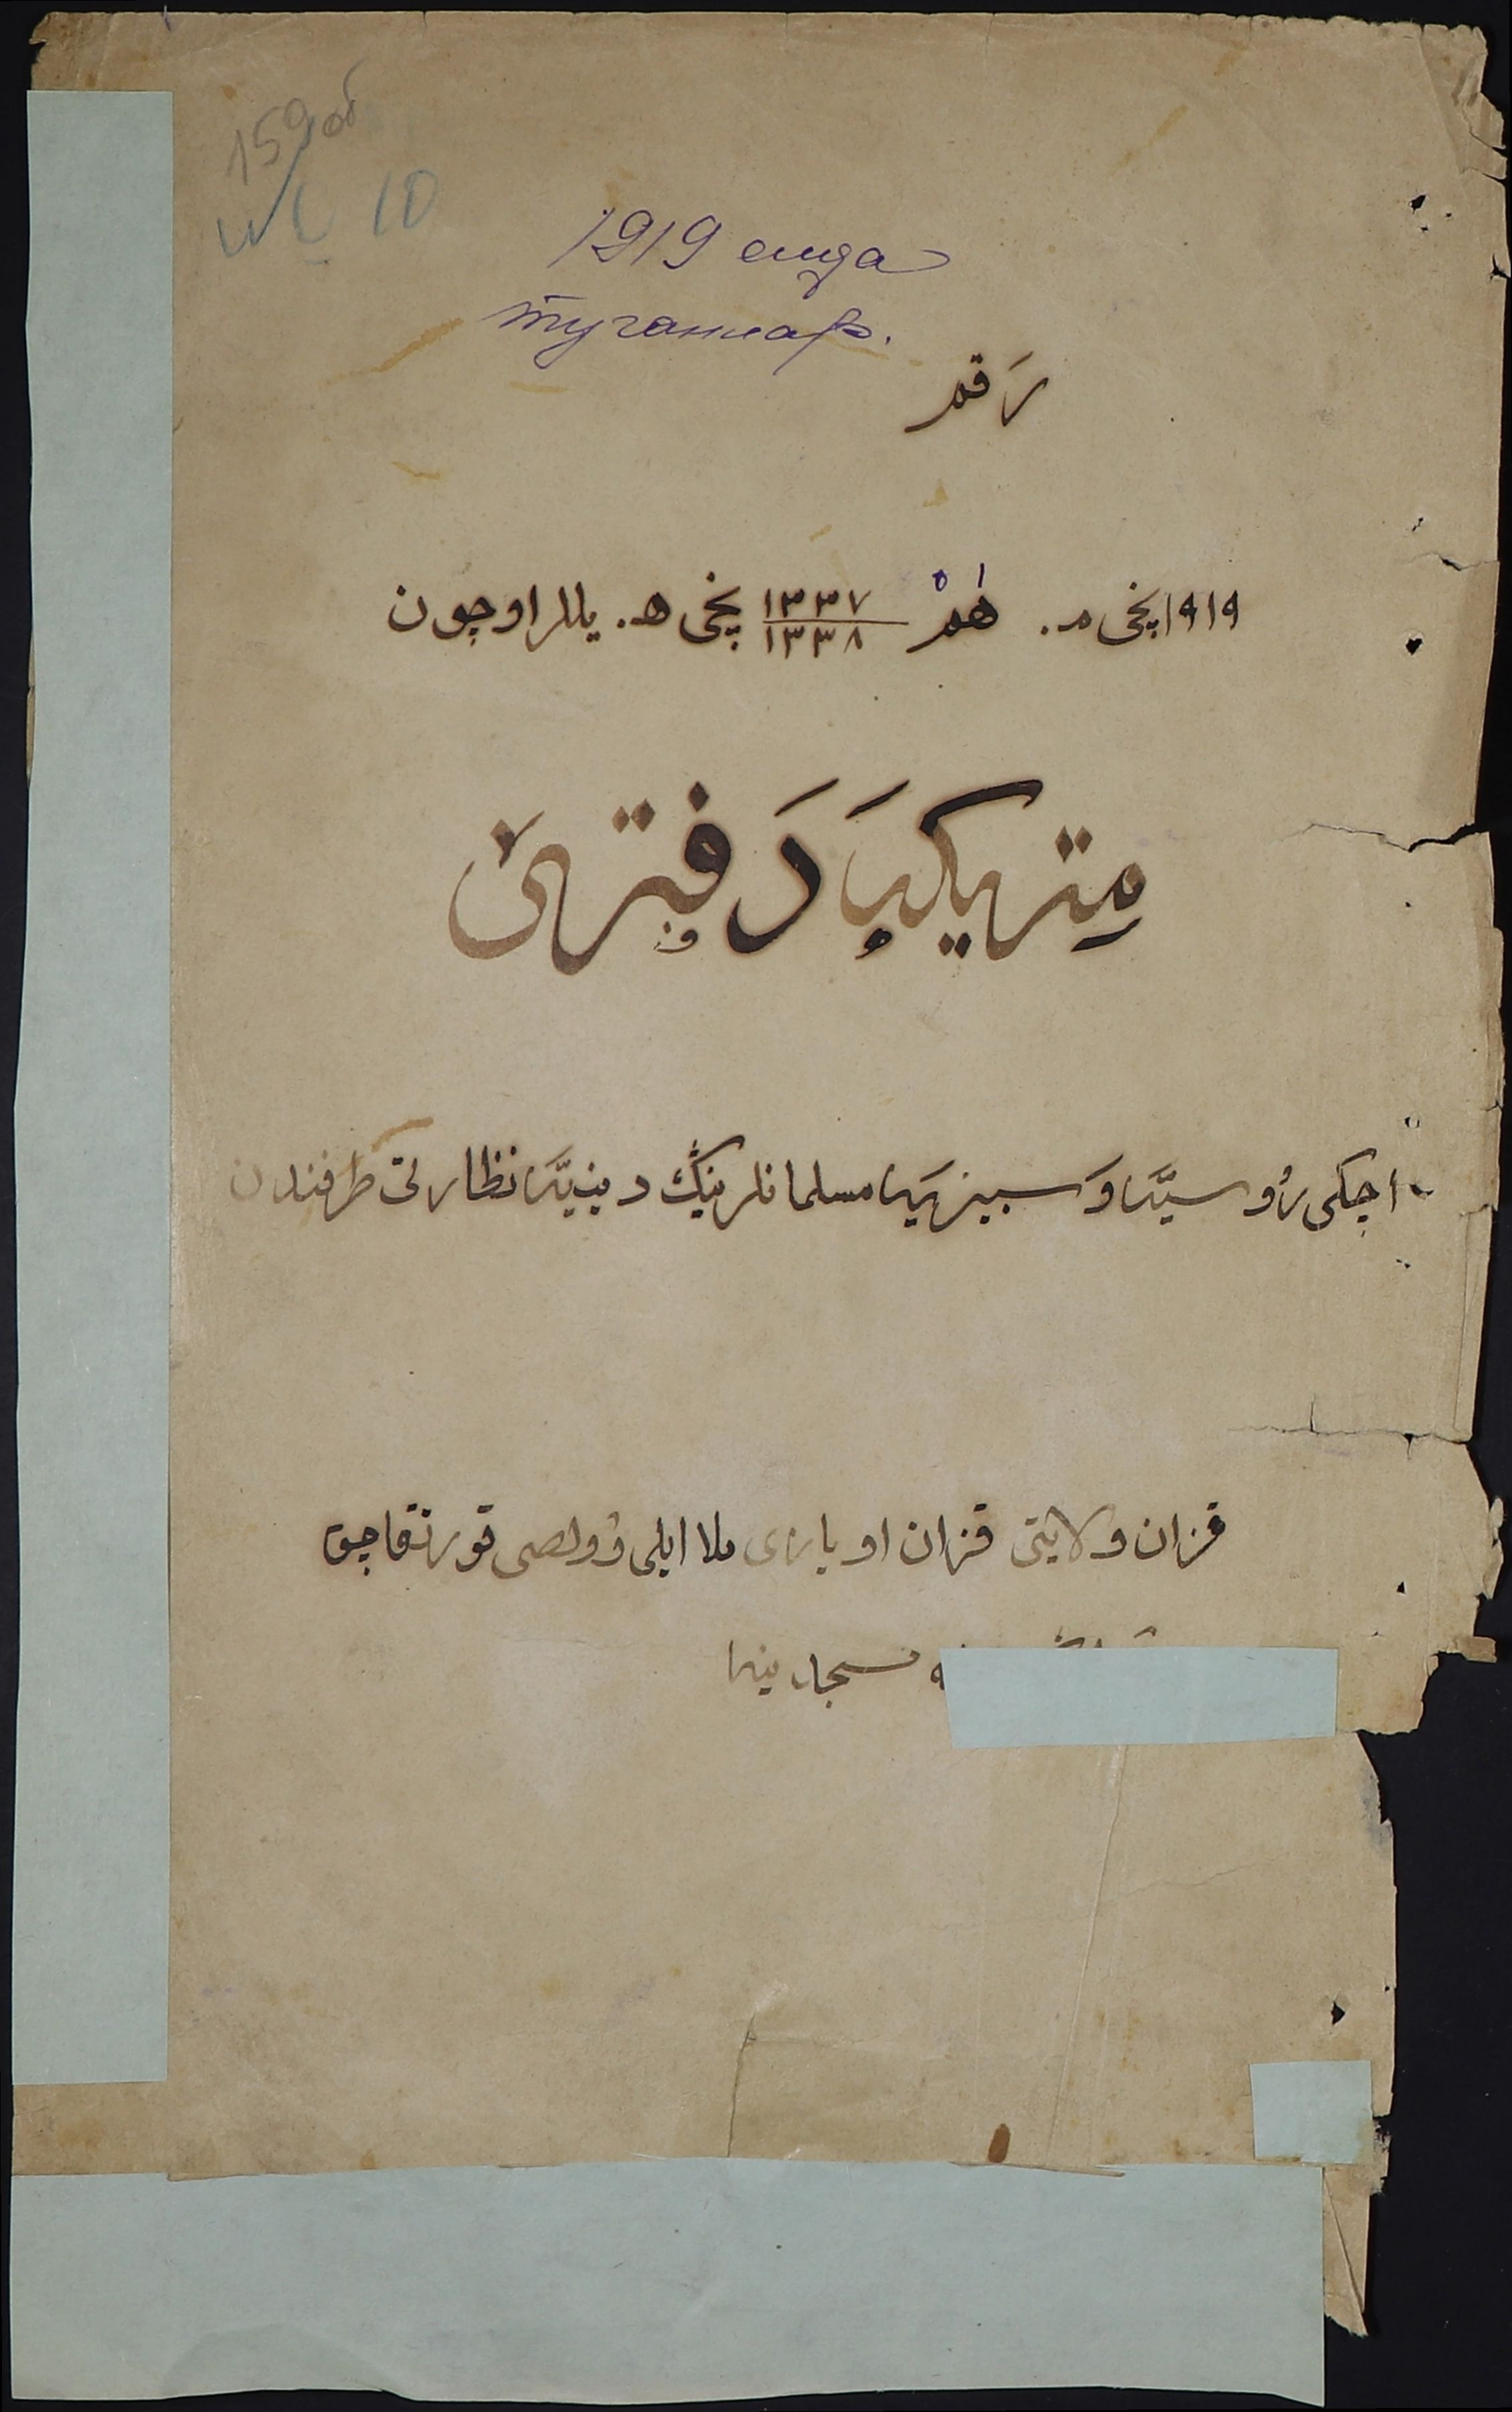 159 об
10
1919 елда
туганнар.
رَقم
١٩١٩ نچی م. هٰمْ ١٣٣٧/١٣٣٨ نچی ه. یللر اوچون
مِتریكَه دَفتری
اچكی رُوسیَّه وَ سبیریَه مسلمانلرینڭ دینیَّه نظارتی طرفندن
قزان ولایتی قزان اویازی ملا ایلی وولصی قورنقاچق
مسجدینه